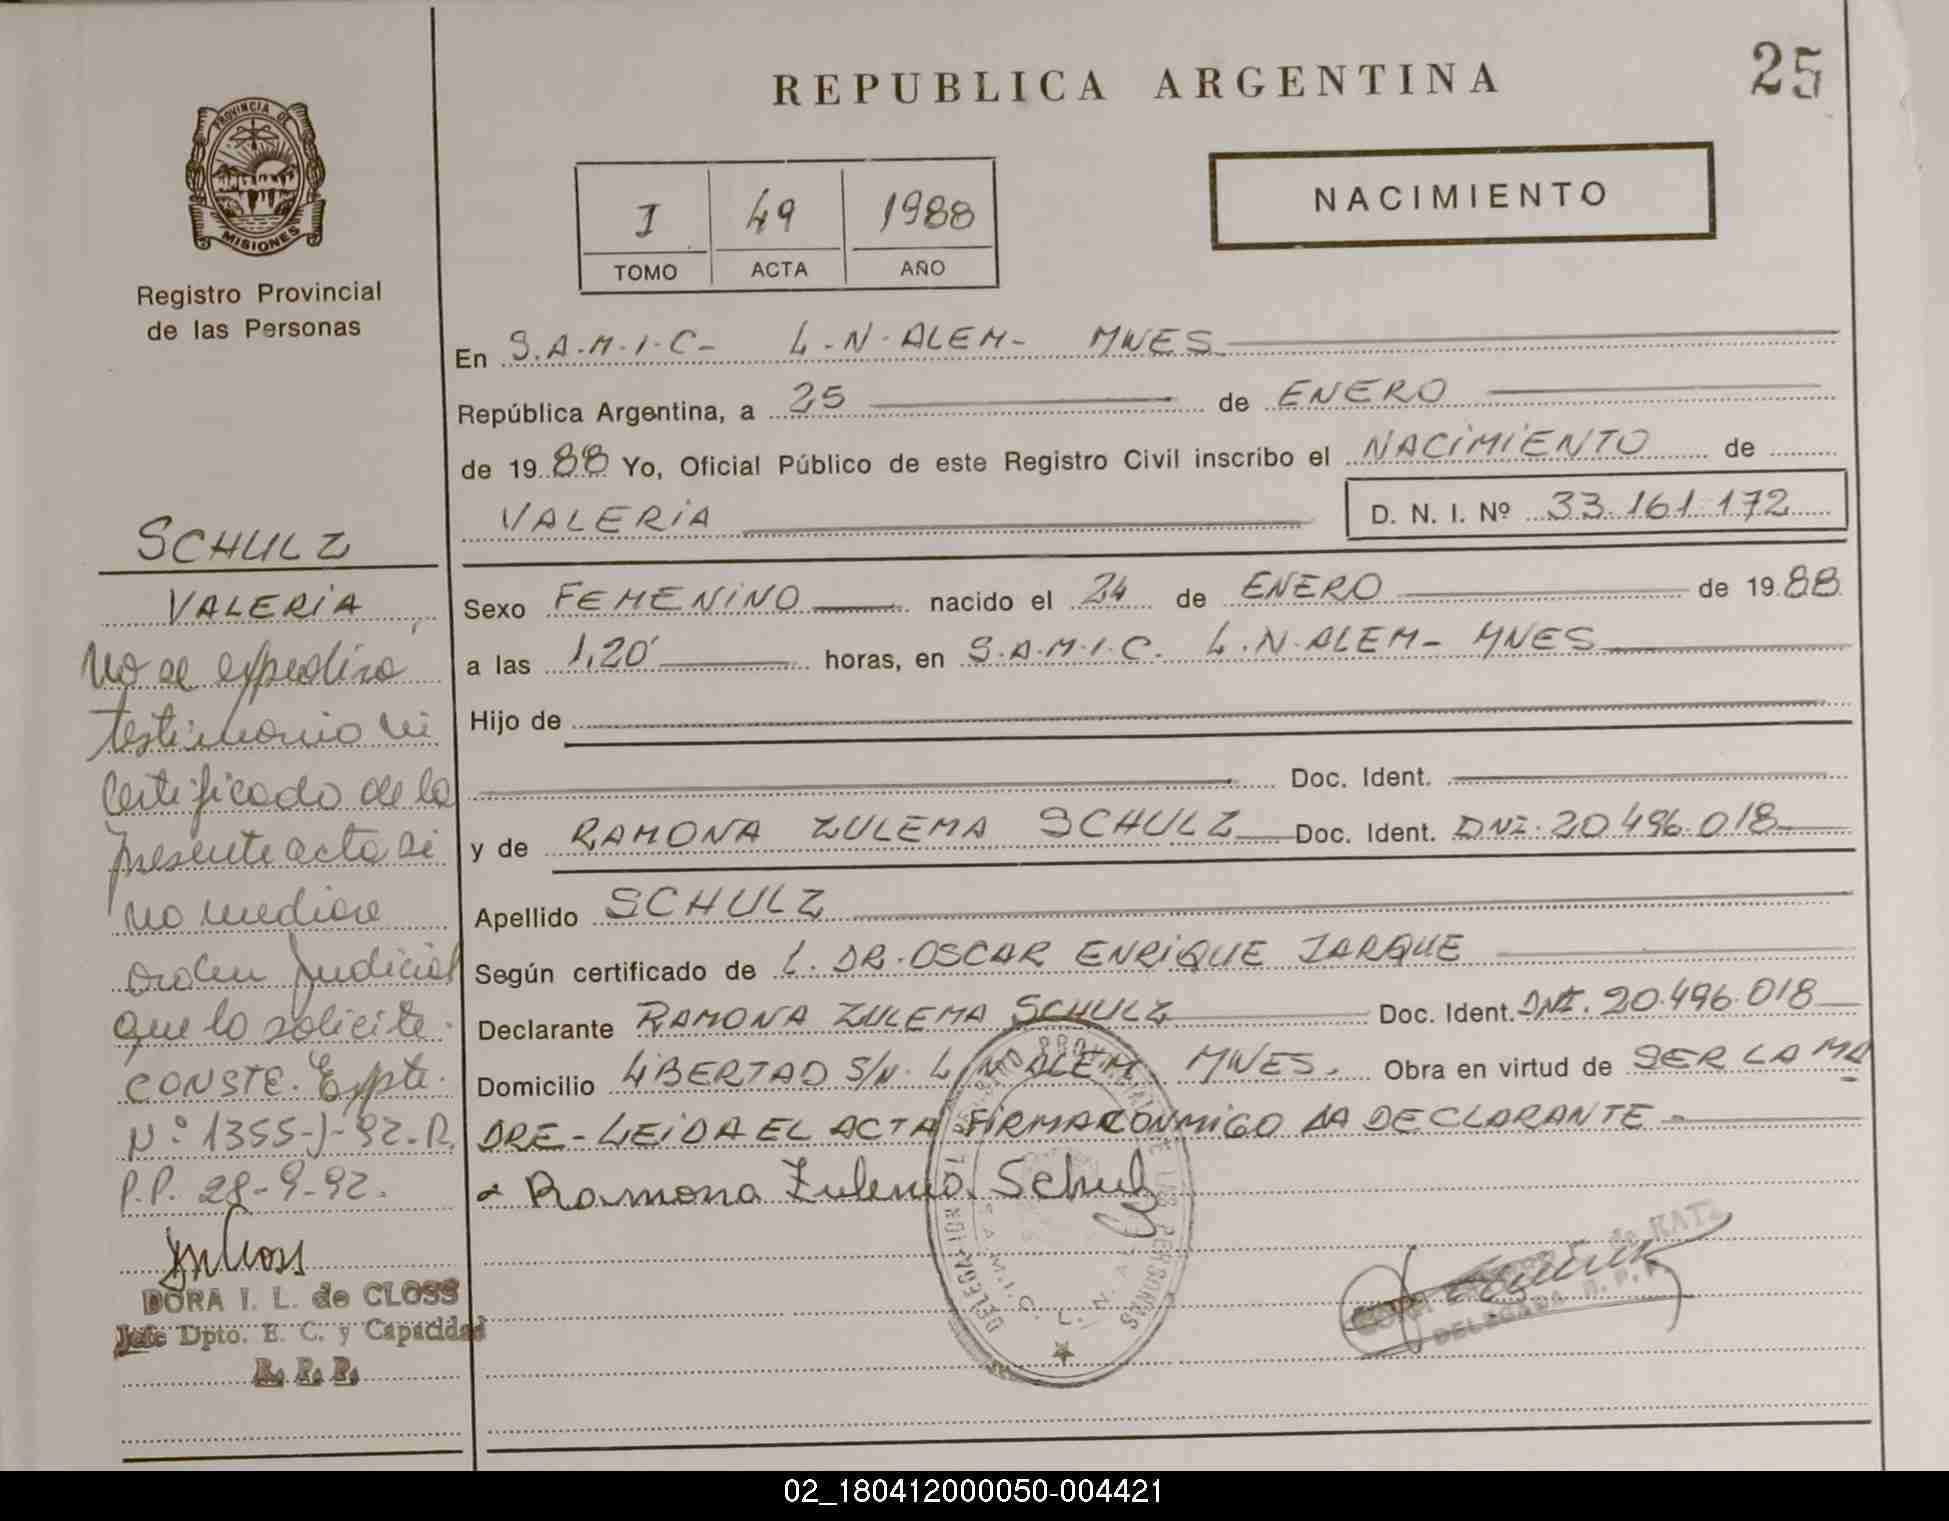 REPUBLICA ARGENTINA
25
PROVINCIA DE
MISIONES
Registro Provincial
de las Personas
I 49 1988
TOMO ACTA AÑO
NACIMIENTO
En S.A.M.I.C- L.N.ALEM- MNES
República Argentina, a 25 de ENERO
de 1988 Yo, Oficial Público de este Registro Civil inscribo el NACIMIENTO de
VALERIA D. N. I. Nº 33.161.172
SCHULZ
VALERIA
No se expedira
testimonio ni
certificado de la
presente acta si
no mediare
orden Judicial
que lo solicite.
CONSTE. Expte.
Nº 1355-J-92-R.
P.P. 28-9-92.
DORA I. L. de CLOSS
Jefe Dpto. E. C. y Capacidad
R. P. P.
Sexo FEMENINO nacido el 24 de ENERO de 1988
a las 1,20' horas, en S.A.M.I.C. L.N.ALEM- MNES
Hijo de
Doc. Ident.
y de RAMONA ZULEMA SCHULZ Doc. Ident. DNI. 20.496.018
Apellido SCHULZ
Según certificado de L. DR. OSCAR ENRIQUE JARQUE
Declarante RAMONA ZULEMA SCHULZ Doc. Ident. DNI. 20.496.018
Domicilio LIBERTAD S/N. L.N.ALEM MNES. Obra en virtud de SER LA MA
DRE- LEIDA EL ACTA FIRMA CONMIGO LA DECLARANTE-
Ramona Zulema Schulz
de KATZ
DELEGADA R.P.P.
DELEGACION
S.A.M.I.C. L.N.A.
PERSONAS
02_180412000050-004421